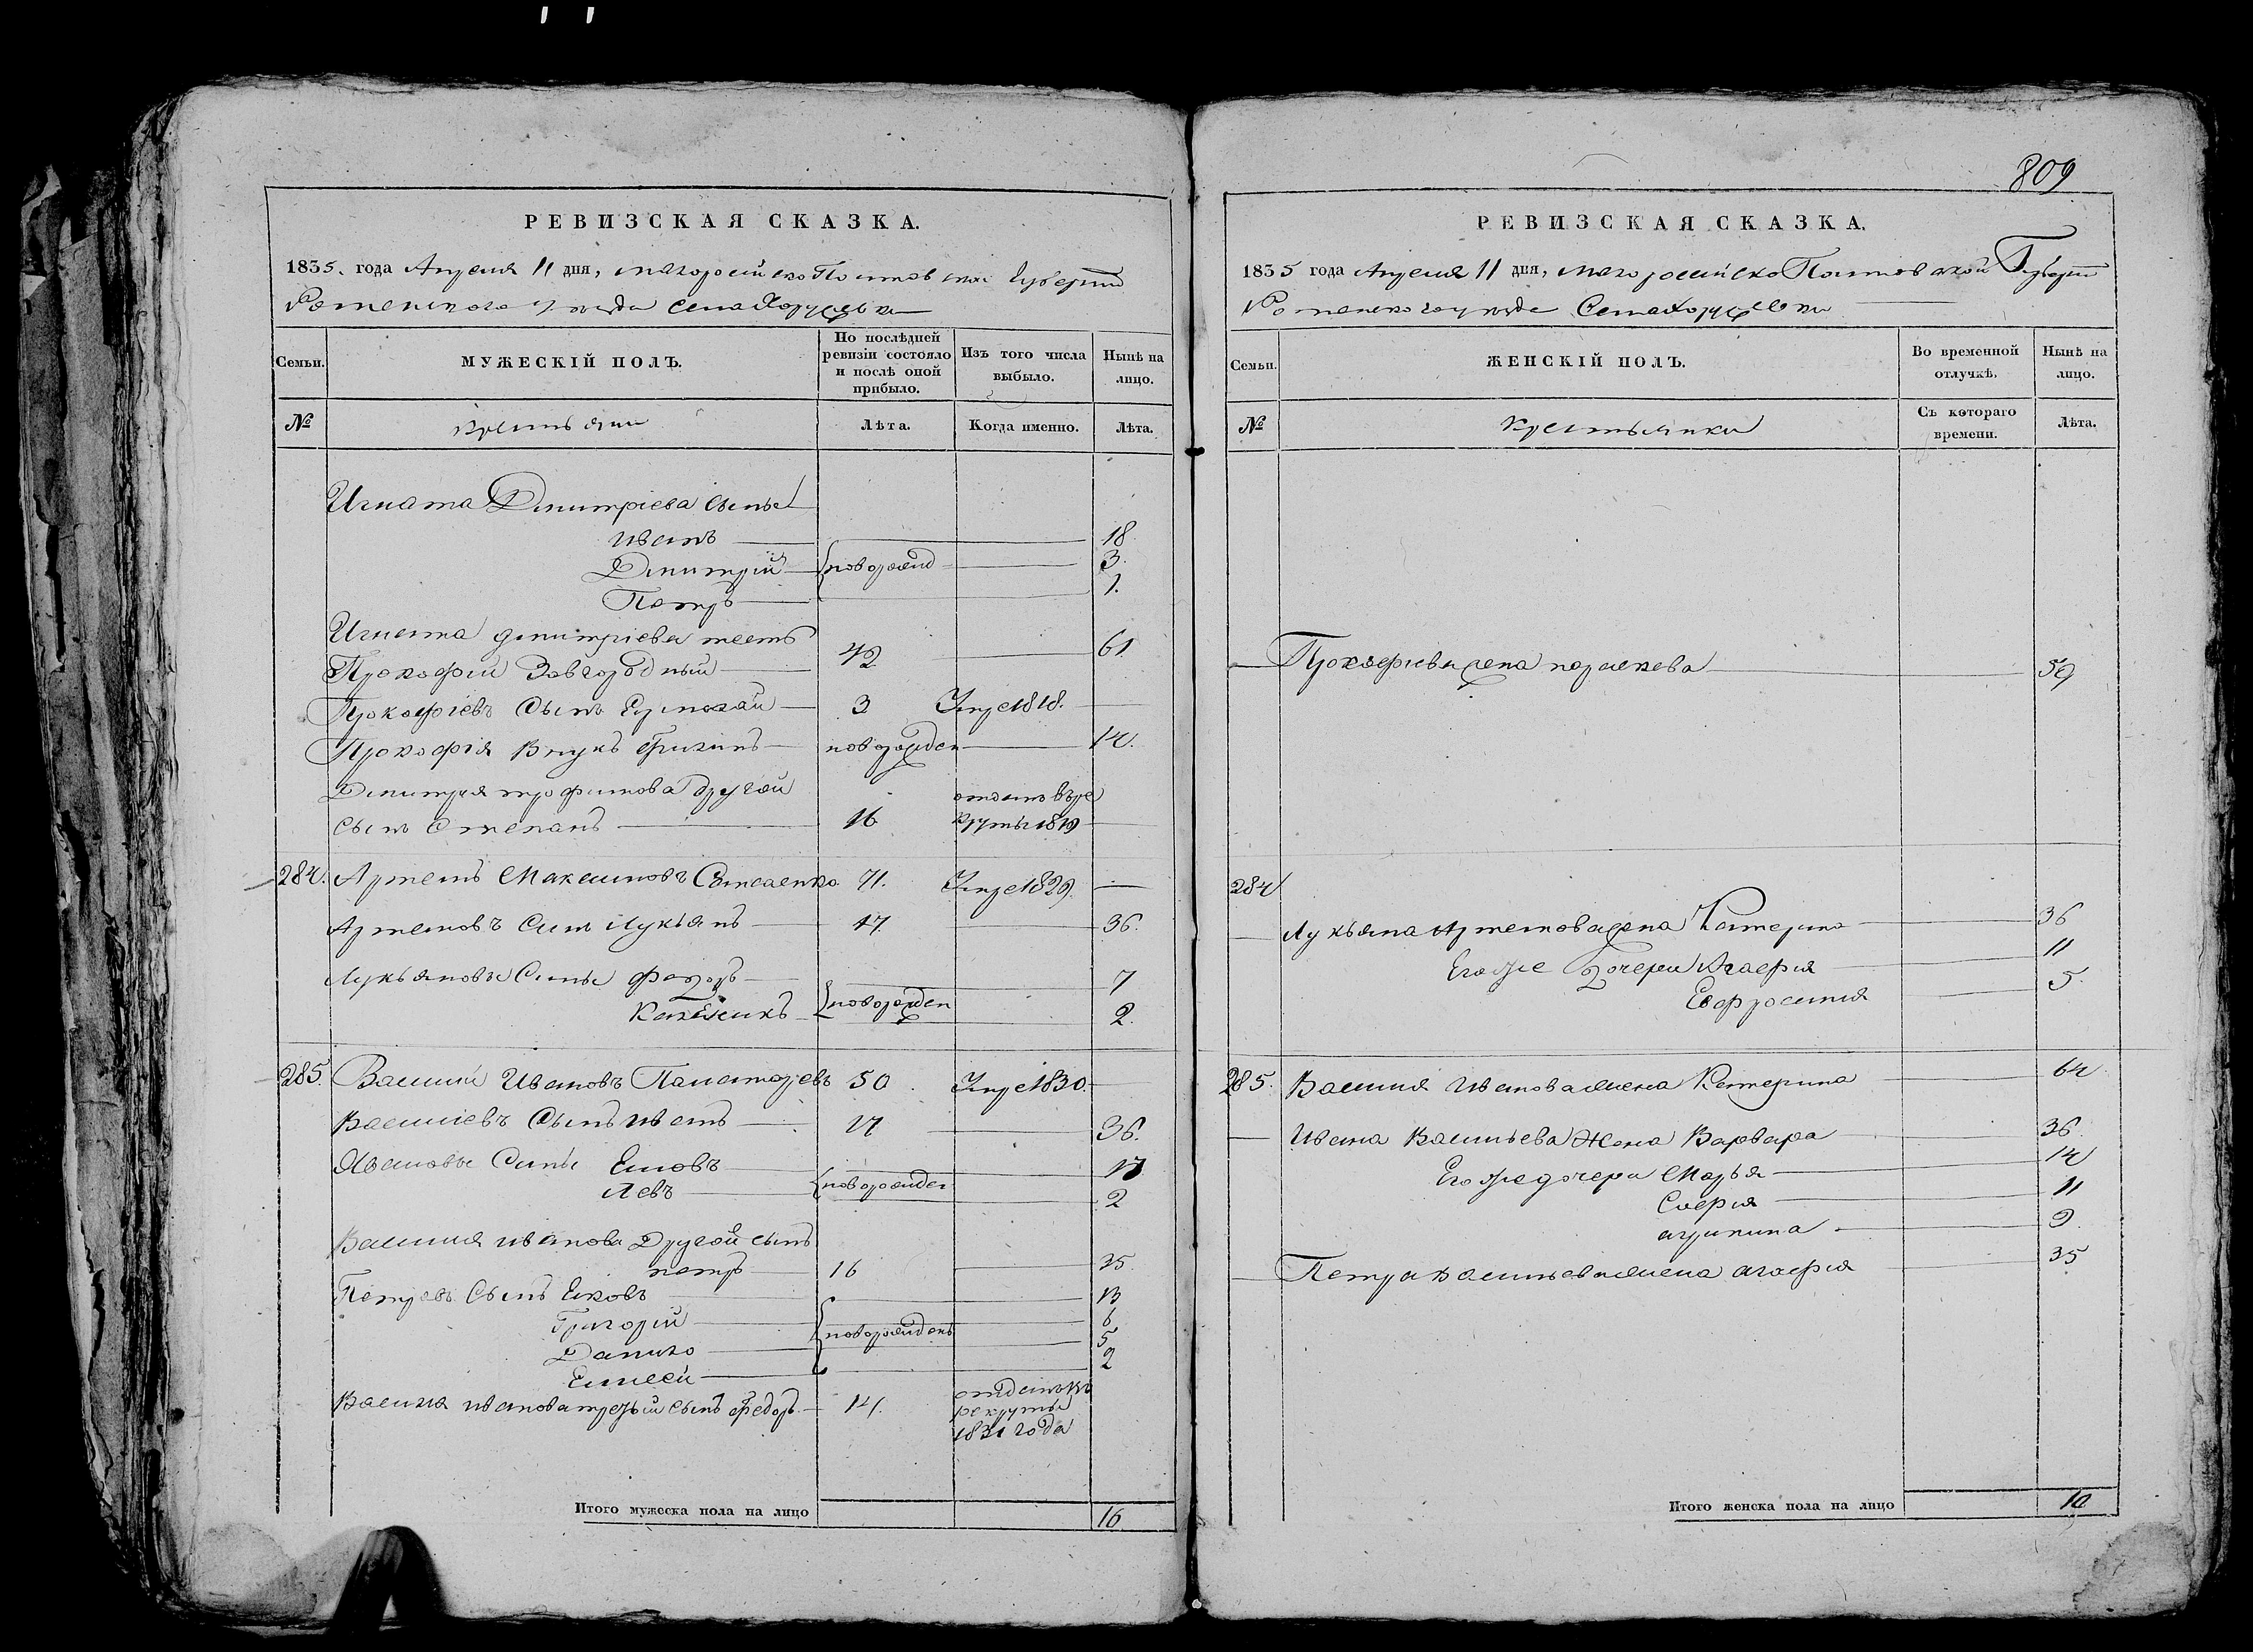 809
РЕВИЗСКАЯ СКАЗКА.
1835. года Апреля 11 дня, малоросийско Полтавской Губернии
Роменского уезда Села Хоружевки
Семьи.
МУЖЕСКІЙ ПОЛЪ.
По послѣдней ревизіи состояло и послѣ оной прибыло.
Изъ того числа выбыло.
Нынѣ на лицо.
№
Крестьяни
Лѣта.
Когда именно.
Лѣта.
Игната Дмитріева сыны
Иванъ 18
Дмитрій новорожд 3.
Петръ 1.
Игната дмитріева тесть
Прокофій Завгородный 42 61
Прокофіевъ Сынъ Ермолай 3 Умре 1818.
Прокофія Внукъ новорожден 14.
Дмитрия трофимова Другой
сынъ Степанъ 16 отданъ въ рекруты 1819
284. Артемъ Максимовъ 71. Умре 1829.
Артемовъ Сынъ Лукьянъ 17 36.
Лукьяновы Сыны Федоръ 7
новорожден 2.
285. Василий Ивановъ 50 Умре 1830.
Василіевъ Сынъ Иванъ 17 36.
Ивановы Сыны 17
Левъ новорожден 2
Василия иванова Другой сынъ
петръ 16 35
Петровъ Сынъ Яковъ 13
Григорій 6
Данило новорожденъ 5
Елисей 2
Василия иванова третьй сынъ Федоръ 14. отданъ въ
рекруты
1831 года
Итого мужеска пола на лицо 16
РЕВИЗСКАЯ СКАЗКА.
1835 года Апреля 11 дня, малоросийско Полтавской Губернии
Роменского уезда Села Хоружевки
Семьи.
ЖЕНСКІЙ ПОЛЪ.
Во временной отлучкѣ.
Нынѣ на лицо.
№
Крестьянки
Съ котораго времени.
Лѣта.
Прокофиева жена 59
284
Лукьяна Артемова жена Катерина 36
Его же дочери Агафия 11
Евфросиния 5.
285. Василия Иванова жена Катерина 64
Ивана Васильева жена Варвара 36
Его же дочери Марья 14
София 11
агрипина 9.
Петра Васильева жена агафия 35
Итого женска пола на лицо 10